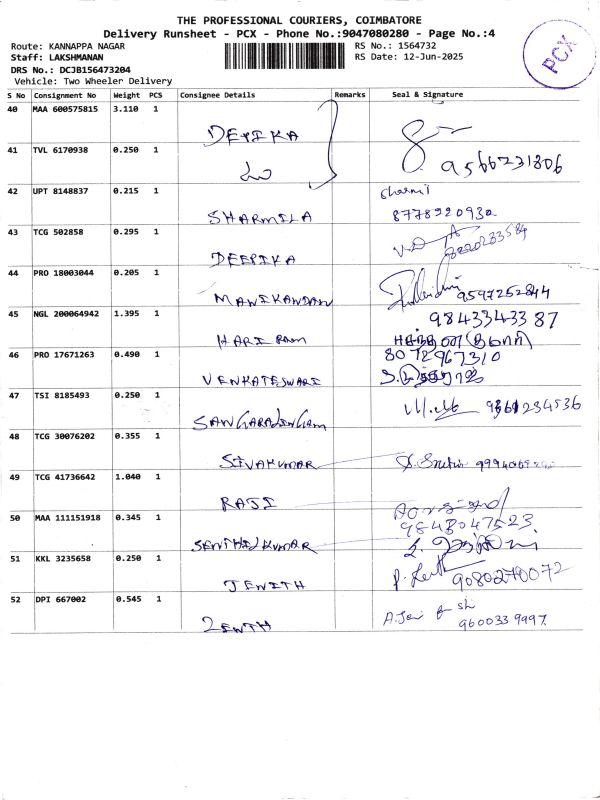 THE PROFESSIONAL COURIERS, COIMBATORE
Delivery Runsheet - PCX - Phone No.:9047080280 - Page No.:4
Route: KANNAPPA NAGAR
Staff: LAKSHMANAN
DRS No.: DCJB156473204
Vehicle: Two Wheeler Delivery
RS No.: 1564732
RS Date: 12-Jun-2025
PCX
S No Consignment No Weight PCS Consignee Details Remarks Seal & Signature
40 MAA 600575815 3.110 1
DEPIKA
41 TVL 6170938 0.250 1
9566231806
42 UPT 8148837 0.215 1
SHARMILA
Sharmi
8778920930
43 TCG 502858 0.295 1
DEEPIKA
44 PRO 18003044 0.205 1
MANIKANDAN 9597252844
45 NGL 200064942 1.395 1
HARI RAM
9843343387
46 PRO 17671263 0.490 1
VENKATESWARI
8072967310
47 TSI 8185493 0.250 1
48 TCG 30076202 0.355 1
SIVAKUMAR
49 TCG 41736642 1.040 1
RAJI
50 MAA 111151918 0.345 1
SENTHILKUMAR
9843047523
51 KKL 3235658 0.250 1
JENITH 9080270072
52 DPI 667002 0.545 1
ZENTH
9600339997